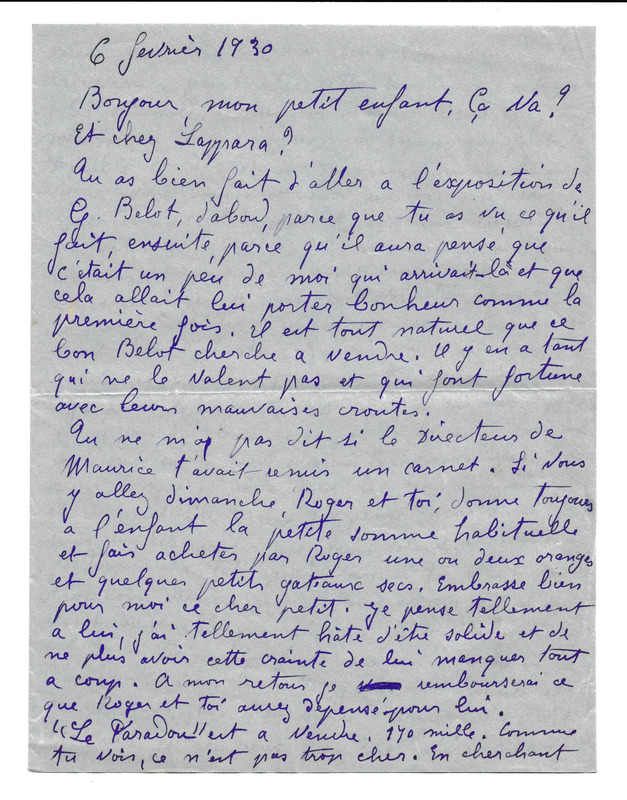 6 fevrièr 1930
Bonjour, mon petit enfant, Ça va ?
Et chez Lappara ?
Tu as bien fait d'aller a l'éxposition de
G. Belot, d'abord, parce que tu as vu ce qu'il
fait, ensuite parce qu'il aura pensé que
c'était un peu de moi qui arrivait-là et que
cela allait lui porter bonheur comme la
première fois. Il est tout naturel que ce
bon Belot cherche a vendre. Il y en a tant
qui ne le valent pas et qui font fortune
avec leurs mauvaises croutes.
Tu ne m'as pas dit si le Directeur de
Maurice t'avait remis un carnet. Si vous
y allez dimanche, Roger et toi, donne toujours
a l'enfant la petite somme habituelle
et fais acheter par Roger une ou deux oranges
et quelques petits gateaux secs. Embrasse bien
pour moi ce cher petit. Je pense tellement
a lui, j'ai tellement hâte d'être solide et de
ne plus avoir cette crainte de lui manquer tout
a coup. A mon retour je rembourserai ce
que Roger et toi aurez dépensé pour lui.
"Le Paradou" est a vendre. 170 mille. Comme
tu vois, ce n'est pas trop cher. En cherchant